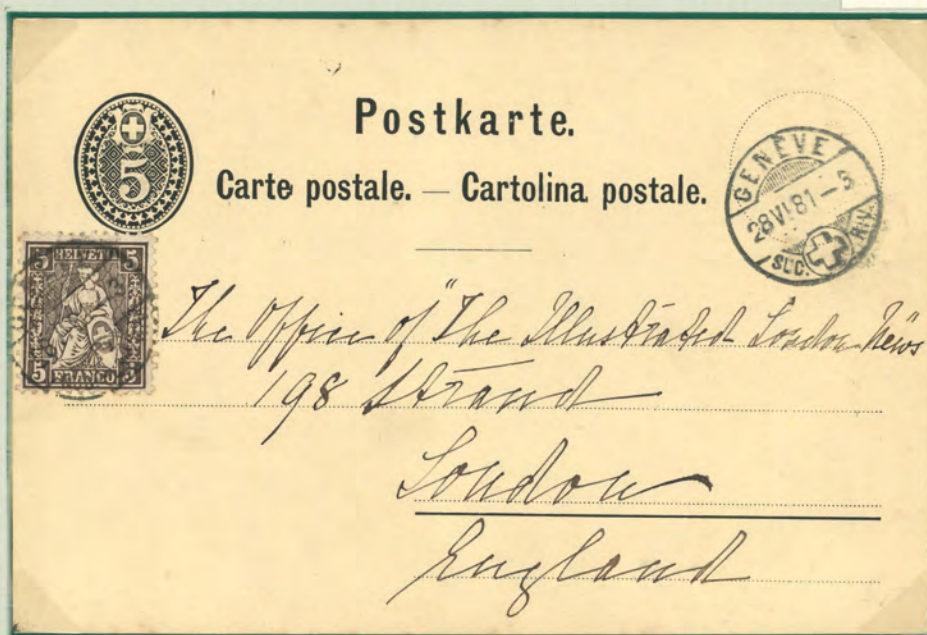 5
Postkarte.
Carte postale. — Cartolina postale.
GENÈVE
28 VI 81 – 5
SUC. RIV.
5 HELVETIA 5
5 FRANCO 5
The Office of "The Illustrated London News
198 Strand
London
England